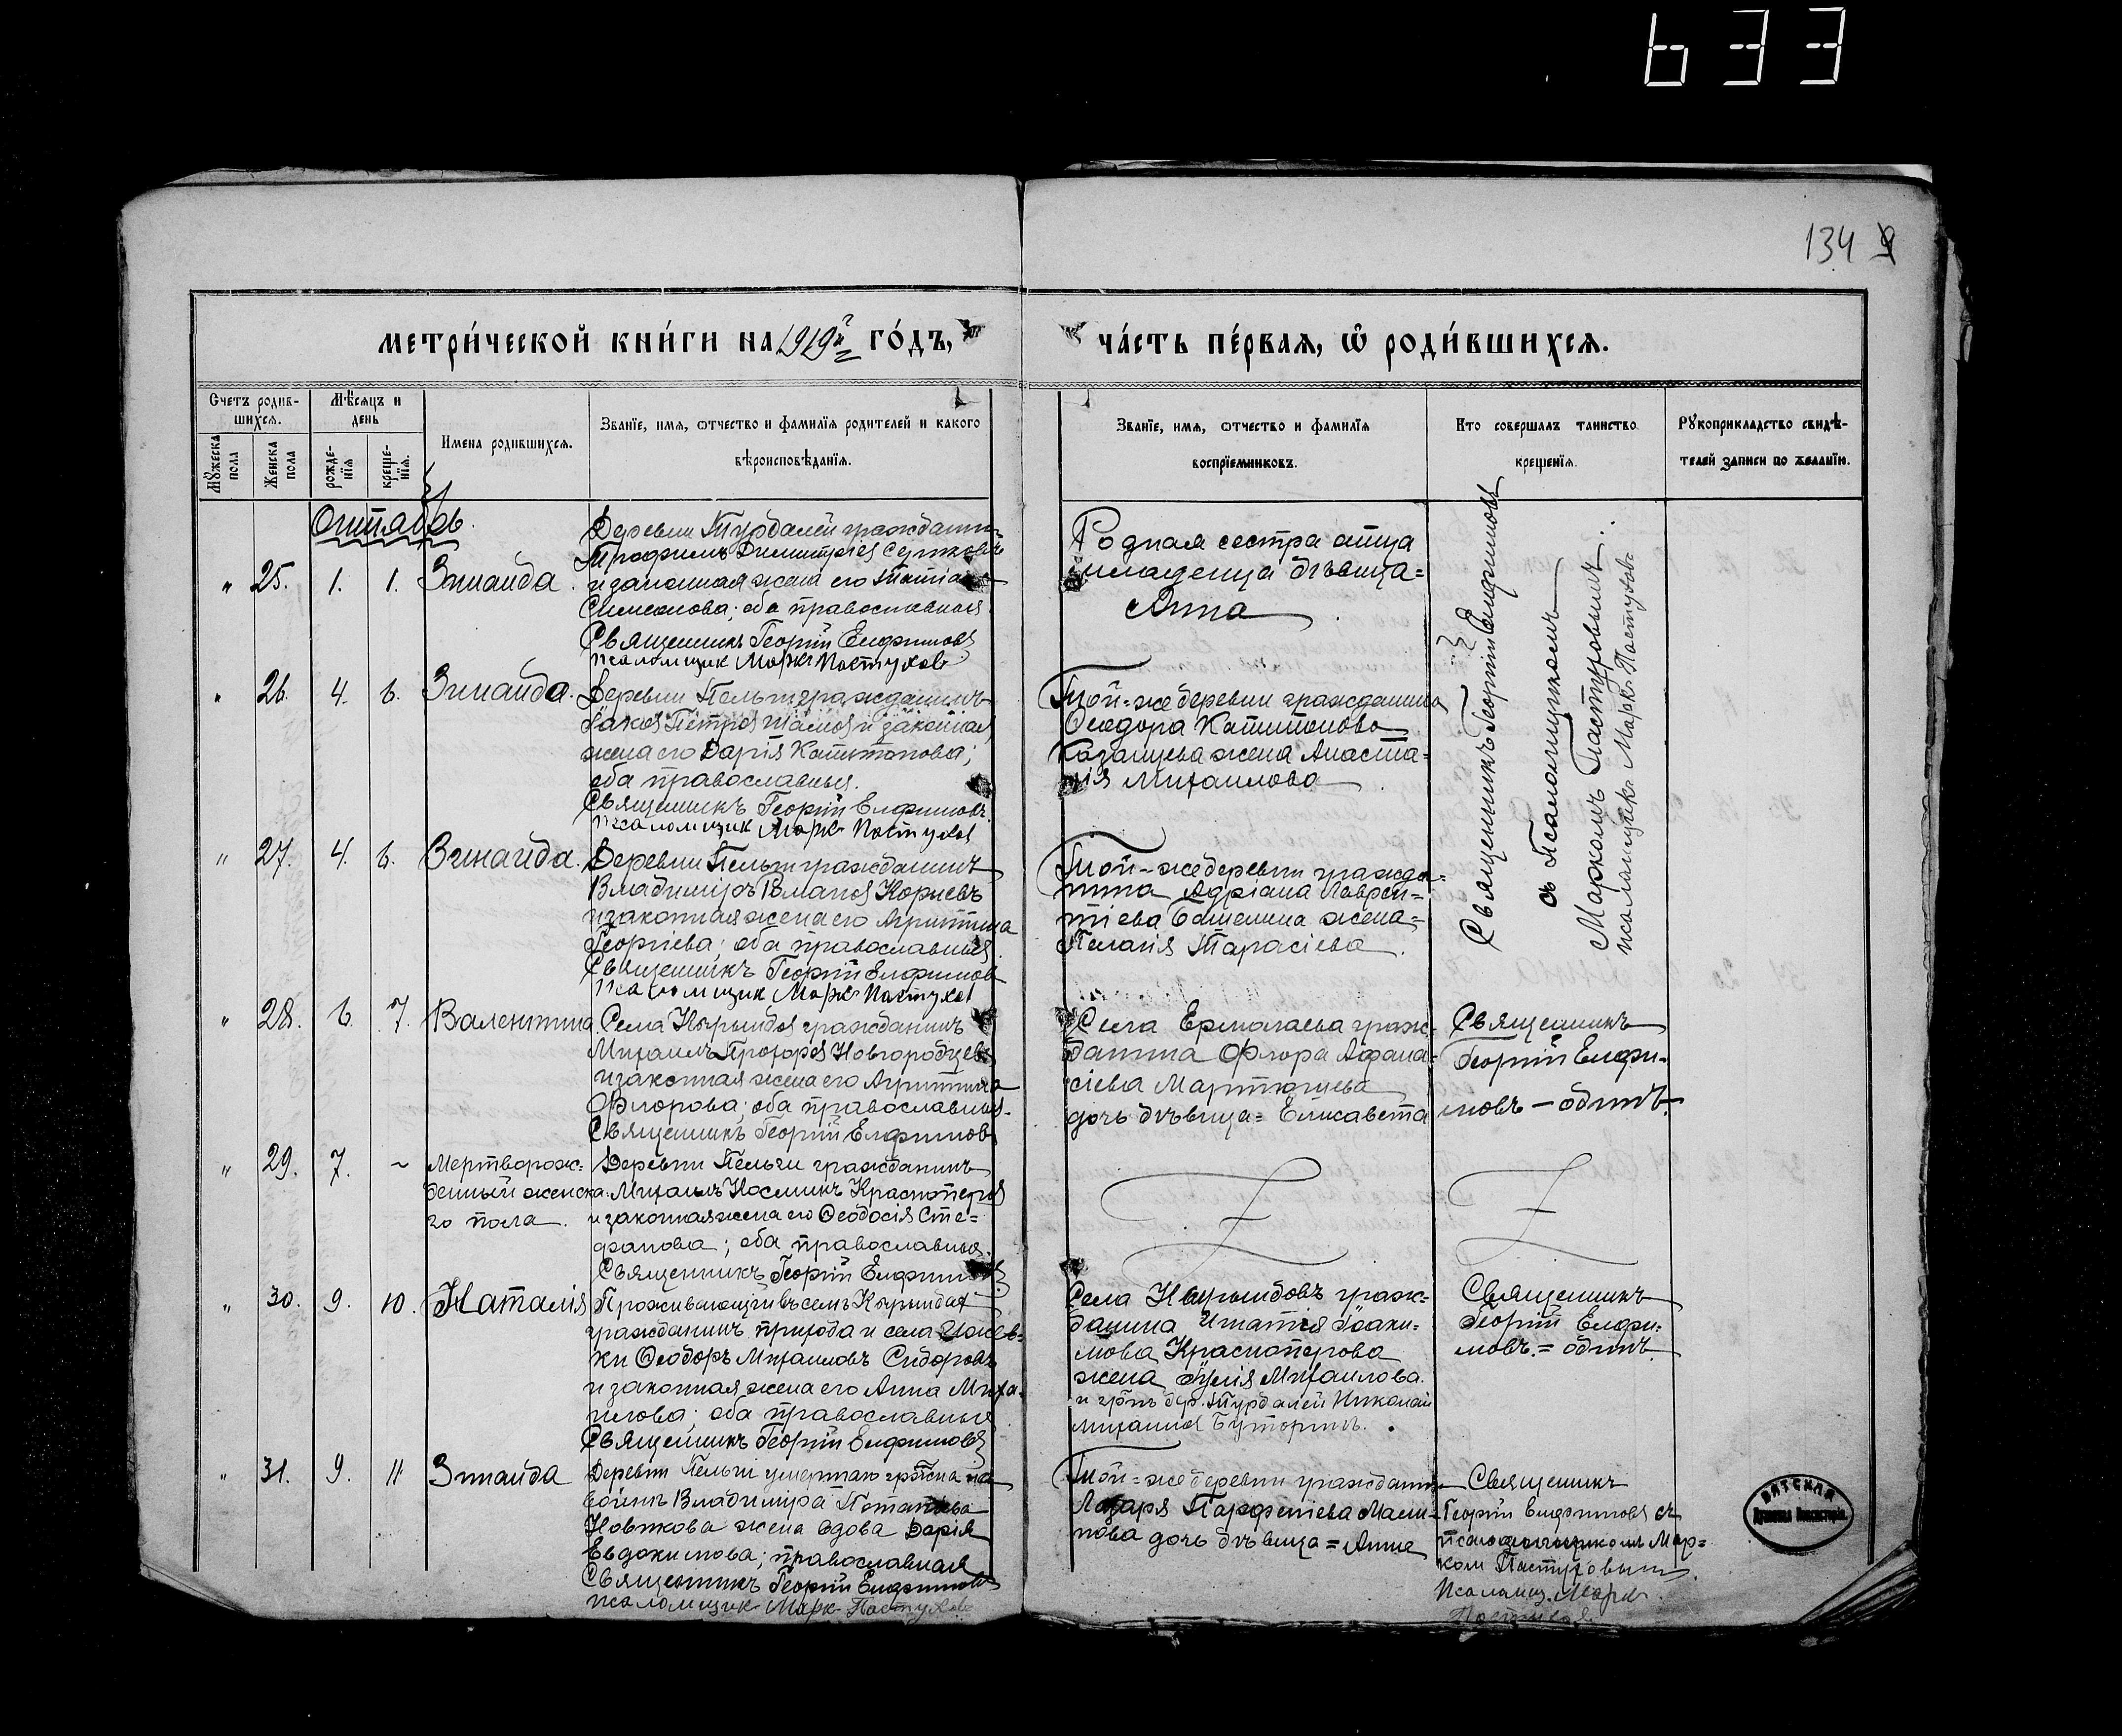 633
134
МЕТРИ́ЧЕСКОЙ КНИ́ГИ НА 1919й ГО́ДЪ,
ЧА́СТЬ ПЕ́РВАЯ, Ѽ РОДИ́ВШИХСЯ.
Счетъ родив-
шихся.
Мѣсяцъ и
день
Имена родившихся.
Званїе, имя, ѿчество и фамилїя родителей и какого
вѣроисповѣданїя.
Мꙋжеска
пола
Женска
пола
рожде-
нїя
креще-
нїя.
Званїе, имя, ѿчество и фамилїя
воспрїемниковъ.
Кто совершалъ таинство
крещенїя.
Рꙋкоприкладство свидѣ-
телей записи по желанїю.
Октябрь.
" 25. 1. 1. Зинаида.
Деревни Турдалей гражданин
Трофимъ Димитріев
и законная жена его
Симеонова; оба православные.
Священникъ Георгій Елфимовъ
псаломщик Маркъ Пастухов
Родная сестра отца
младенца дѣвица=
Анна
Священникъ Георгій Елфимовъ
съ Псаломщикомъ
Маркомъ Пастуховымъ.
псаломщик Маркъ Пастухов
" 26. 4. 6. Зинаида.
Деревни Пельги гражданинъ
Петров и законная
жена его Дарія Капитонова;
оба православные.
Священникъ Георгій Елфимовъ
псаломщик Маркъ Пастухов
Той-же деревни гражданина
Ѳеодора Капитонова
Казанцева жена Анаста=
сія Михаилова
" 27. 4. 6. Зинаида.
Деревни Пельги гражданинъ
Владиміръ Корневъ
и законная жена его Агриппина
Георгіева; оба православные.
Священникъ Георгій Елфимов
псаломщик Маркъ Пастухов
Той-же деревни гражда=
нина Адріана Лаврен=
тіева жена=
Пелагія Тарасіева.
" 28. 6. 7. Валентина.
Села гражданинъ
Михаилъ Прохоров Новгородцевъ
и законная жена его Агриппина
Флорова; оба православные.
Священникъ Георгій Елфимов
Села Ермолаева граж=
данина Флора Афана=
сіева Мартюшева
дочь дѣвица= Елисавета
Священникъ
Георгій Елфи-
мовъ - одинъ.
" 29. 7. ~ Мертворож=
денный женска
го пола.
Деревни Пельги гражданинъ
Михаилъ Косминъ Красноперов
и законная жена его Ѳеодосія Сте=
фанова; оба православные.
Священникъ Георгій Елфимовъ
" 30. 9. 10. Наталія
Проживающій въ селѣ
гражданинъ прихода и села Ижев-
ки Ѳеодоръ Михаиловъ Сидоровъ
и законная жена его Анна Миха-
илова; оба православные
Священникъ Георгій Елфимовъ
Села граж=
данина Игнатія Іоаки=
мова Красноперова
жена Іулія Михаилова.
и гр-нъ дер. Турдалей Николай
Михаилов Буторинъ.
Священникъ
Георгій Елфи=
мовъ.= одинъ.
" 31. 9. 11 Зинаида
Деревни Пельги умершаго на
войнѣ Владиміра
Новикова жена вдова Дарія
Евдокимова; православная
Священникъ Георгій Елфимовъ
псаломщик Маркъ Пастухов
Той=же деревни гражданина
Лазаря Парфеніева
дочь дѣвица = Анна
Священникъ
Георгій Елфимовъ съ
псаломщикомъ Мар=
комъ Пастуховымъ.
Псаломщ. Маркъ
Пастухов.
ВЯТСКАЯ
Духовная Консисторія.